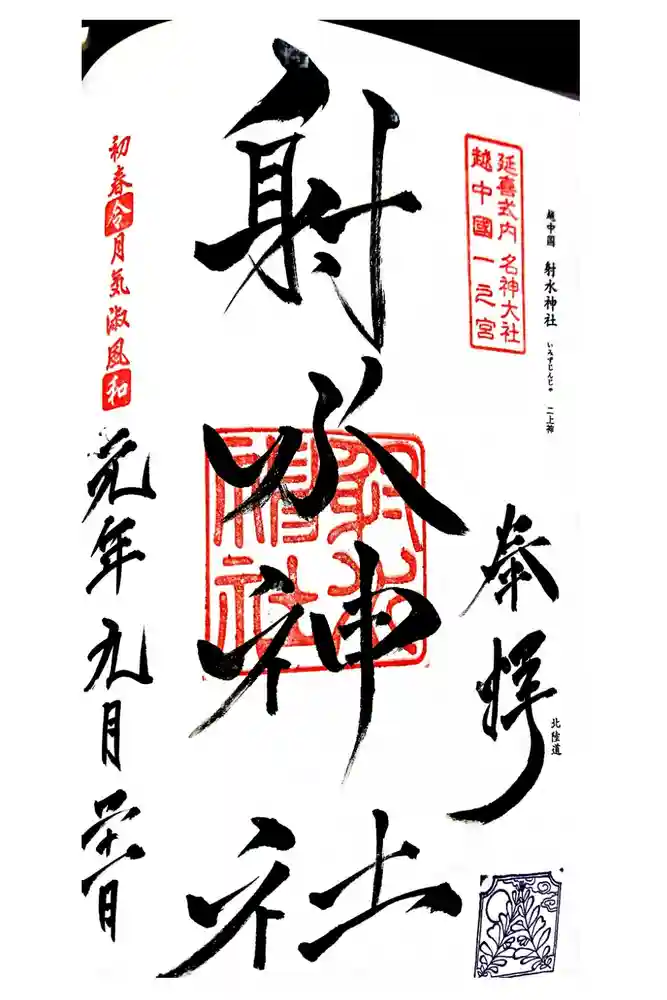 越中国 射水神社 いみずじんじゃ 二上神
北陸道
延喜式内 名神大社
越中國一之宮
奉拝
射水神社
射水
神社
初春令月気淑風和
元年九月廿一日